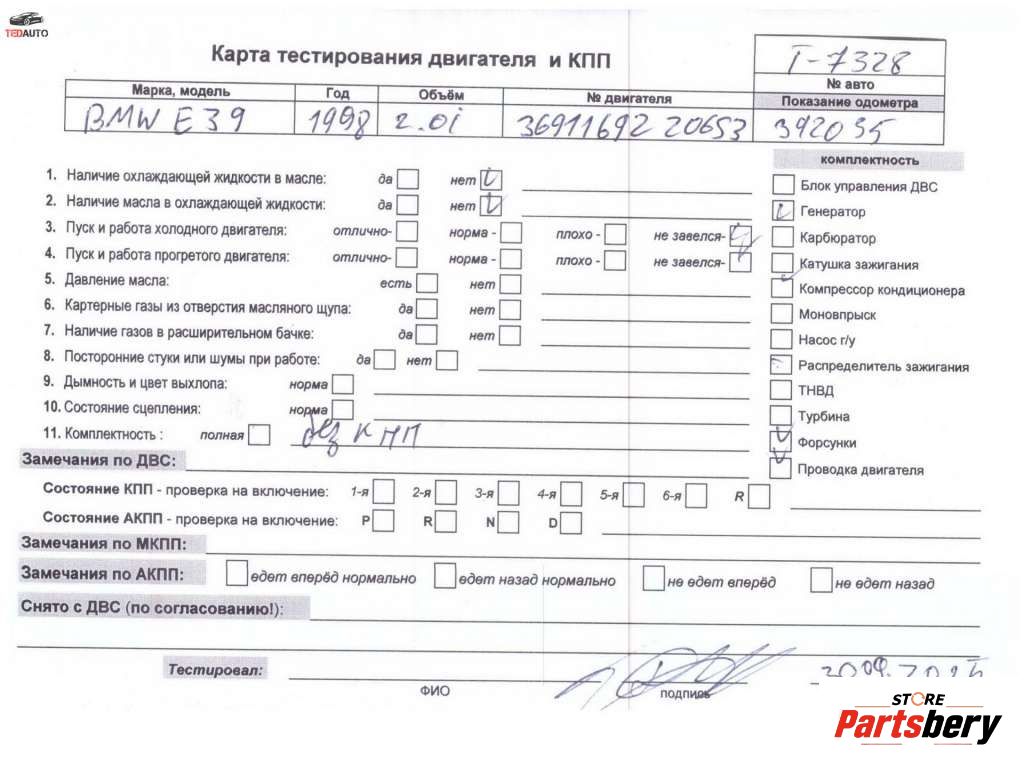 TEDAUTO
Карта тестирования двигателя и КПП
Т-7328
№ авто
Марка, модель Год Объём № двигателя Показание одометра
BMW E39 1998 2.0i 36911692 20653 392035
комплектность
1. Наличие охлаждающей жидкости в масле: да нет
Блок управления ДВС
2. Наличие масла в охлаждающей жидкости: да нет
Генератор
3. Пуск и работа холодного двигателя: отлично- норма - плохо - не завелся-
Карбюратор
4. Пуск и работа прогретого двигателя: отлично- норма - плохо - не завелся-
Катушка зажигания
5. Давление масла: есть нет
Компрессор кондиционера
6. Картерные газы из отверстия масляного щупа: да нет
Моновпрыск
7. Наличие газов в расширительном бачке: да нет
Насос г/у
8. Посторонние стуки или шумы при работе: да нет
Распределитель зажигания
9. Дымность и цвет выхлопа: норма
ТНВД
10. Состояние сцепления: норма
Турбина
11. Комплектность : полная без КПП
Форсунки
Замечания по ДВС:
Проводка двигателя
Состояние КПП - проверка на включение: 1-я 2-я 3-я 4-я 5-я 6-я R
Состояние АКПП - проверка на включение: P R N D
Замечания по МКПП:
Замечания по АКПП: едет вперёд нормально едет назад нормально не едет вперёд не едет назад
Снято с ДВС (по согласованию!):
Тестировал:
ФИО подпись
STORE
Partsbery